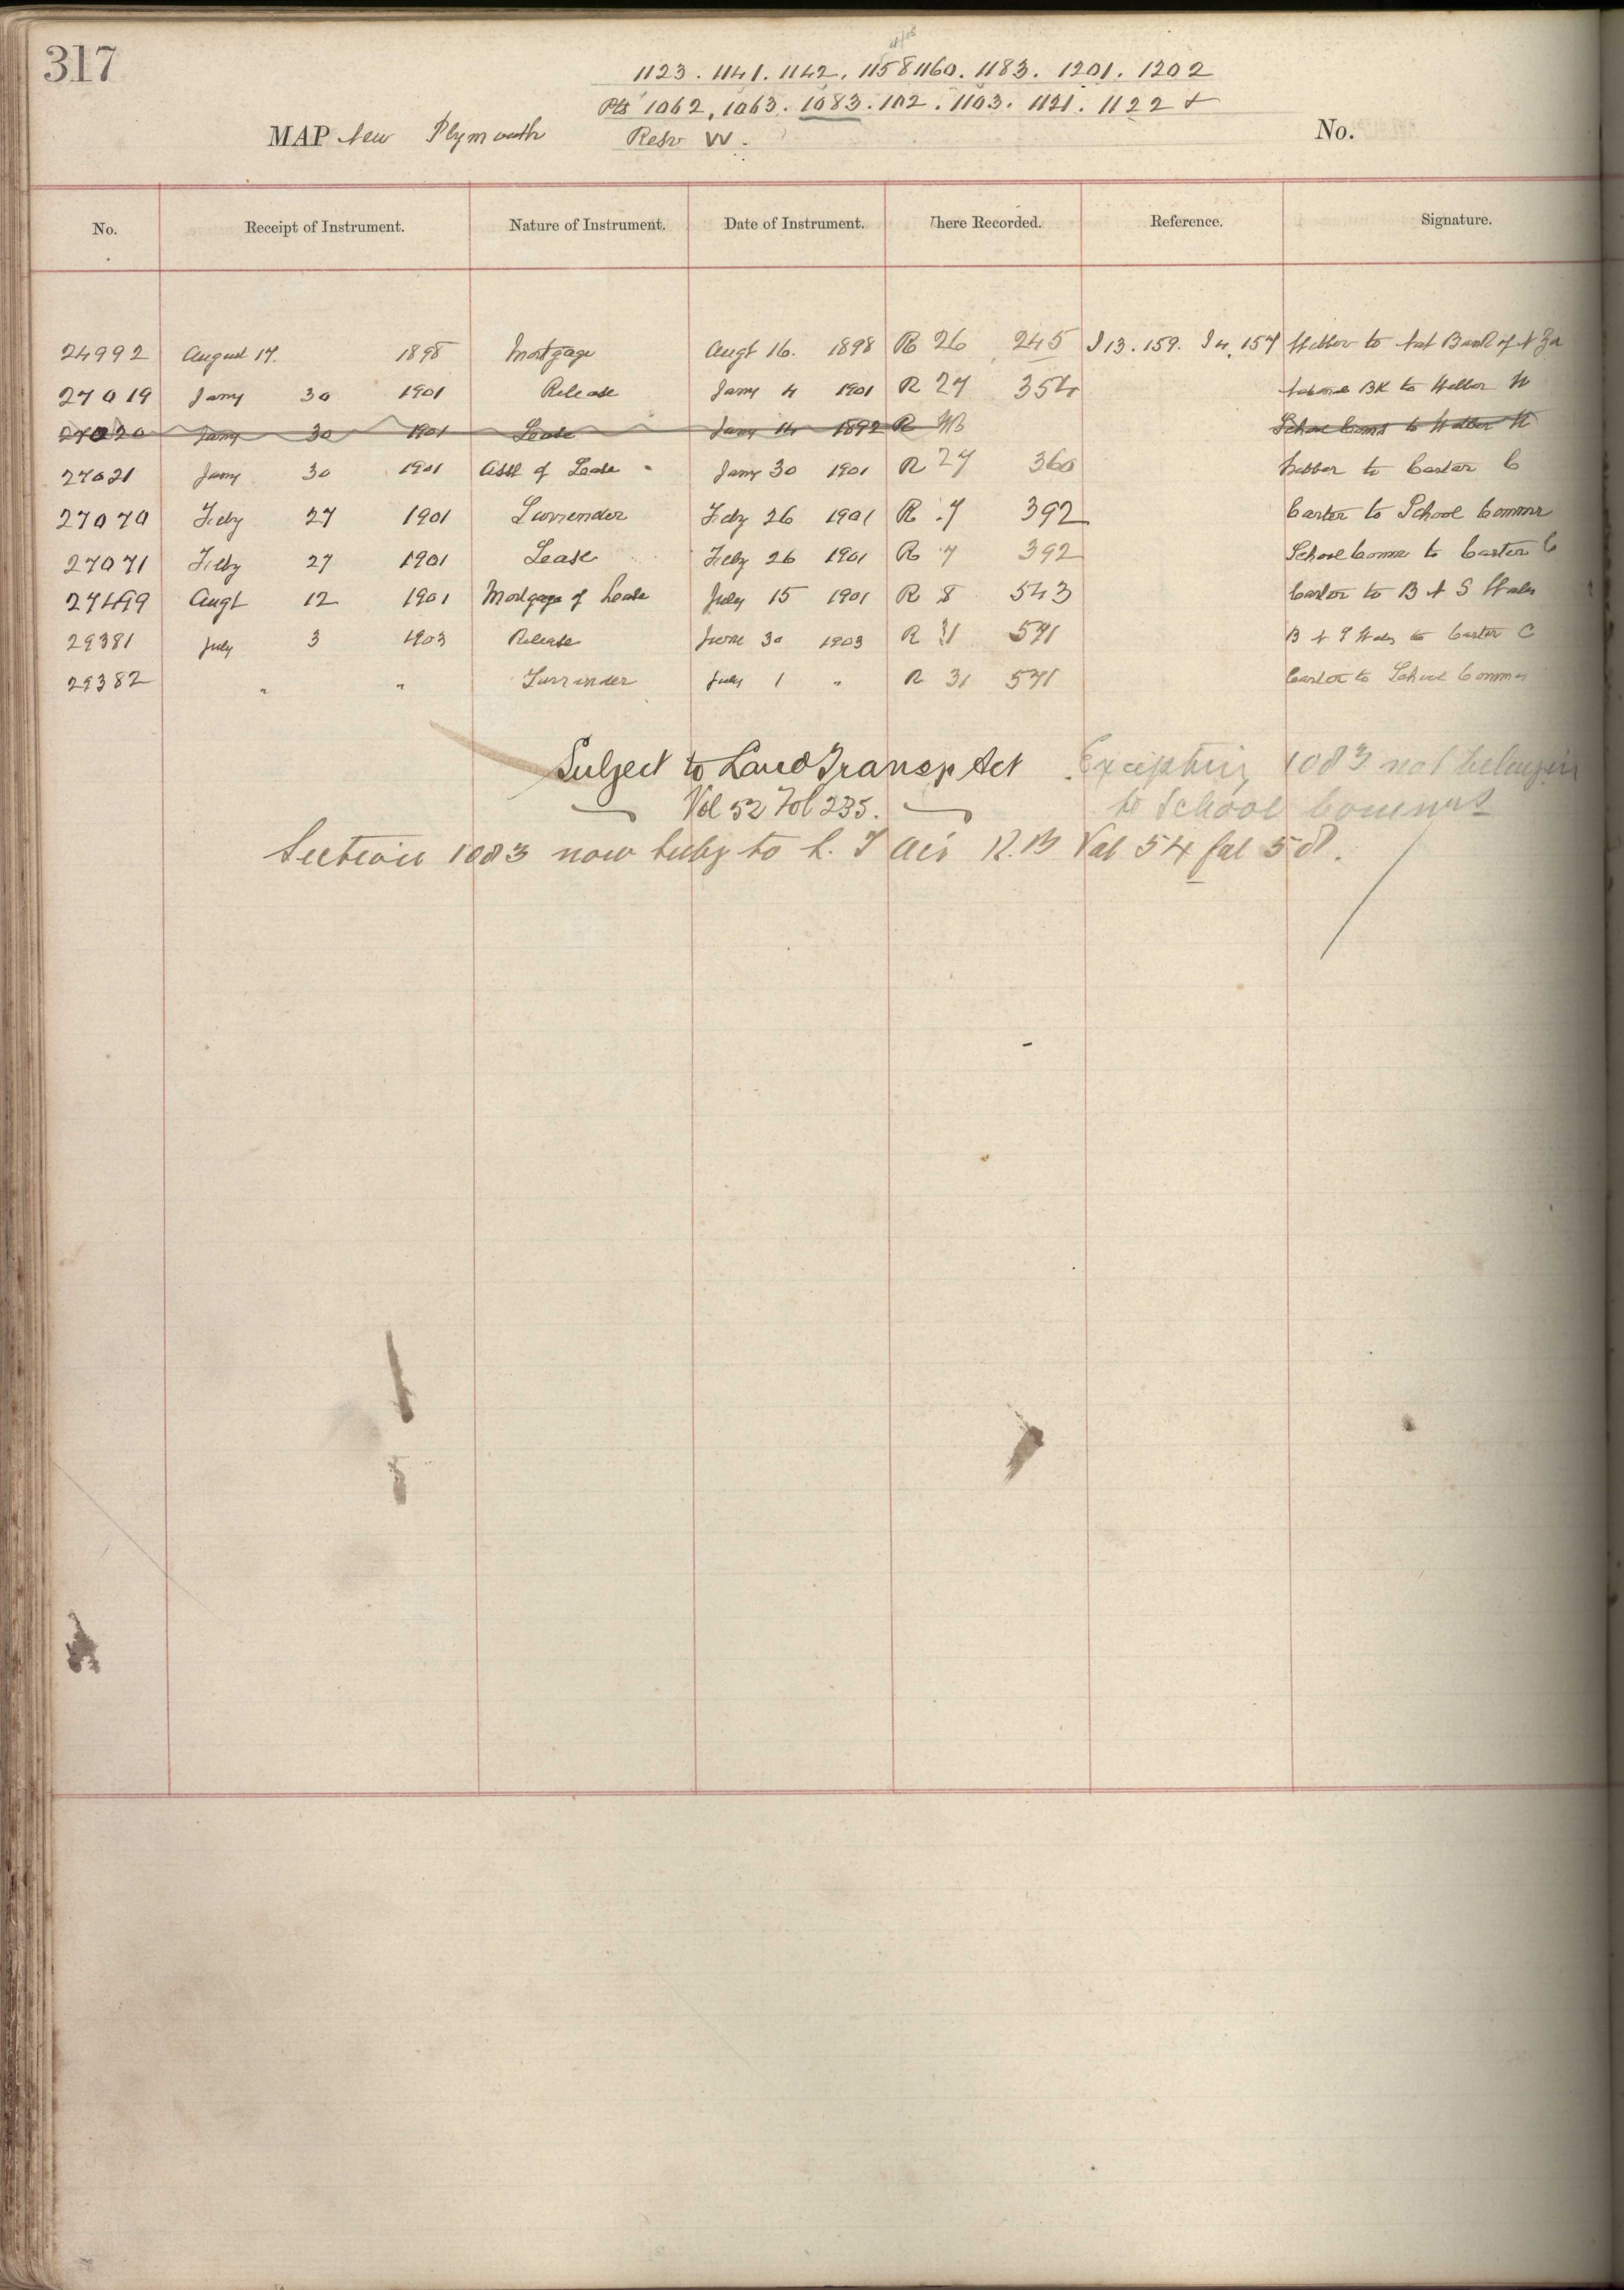 317
1123. 1141. 1142. 1158 1160. 1183. 1201. 1202
Pts 1062, 1063. 1083. 1102. 1103. 1121. 1122 +
MAP New Plymouth Resv W. No.
No. Receipt of Instrument. Nature of Instrument. Date of Instrument. here Recorded. Reference. Signature.
24992 August 17. 1898 Mortgage Augt 16. 1898 R 26 245 I 13. 159. I 4. 157 to Nat Bank of N Z
27019 Jany 30 1901 Release Jany 4 1901 R 27 354 BK to
27020 Jany 30 1901 Lease Jany 14 1892 R School Coms to
27021 Jany 30 1901 Asst of Lease Jany 30 1901 R 27 360 to Carter C
27070 Feby 27 1901 Surrender Feby 26 1901 R 7 392 Carter to School Commr
27071 Feby 27 1901 Lease Feby 26 1901 R 7 392 School Comm to Carter C
27499 Augt 12 1901 Mortgage of Lease July 15 1901 R 8 543 Carter to B & S
29381 July 3 1903 Release June 30 1903 R 31 571 B & S to Carter C
29382 " " Surrender July 1 " R 31 571 Carter to School Commrs
Subject to Land Transf Act Excepting 1083 not belonging
Vol 52 Fol 235. to School Commrs
Section 1083 now subj to L. T Act R.B Vol 54 fol 58.